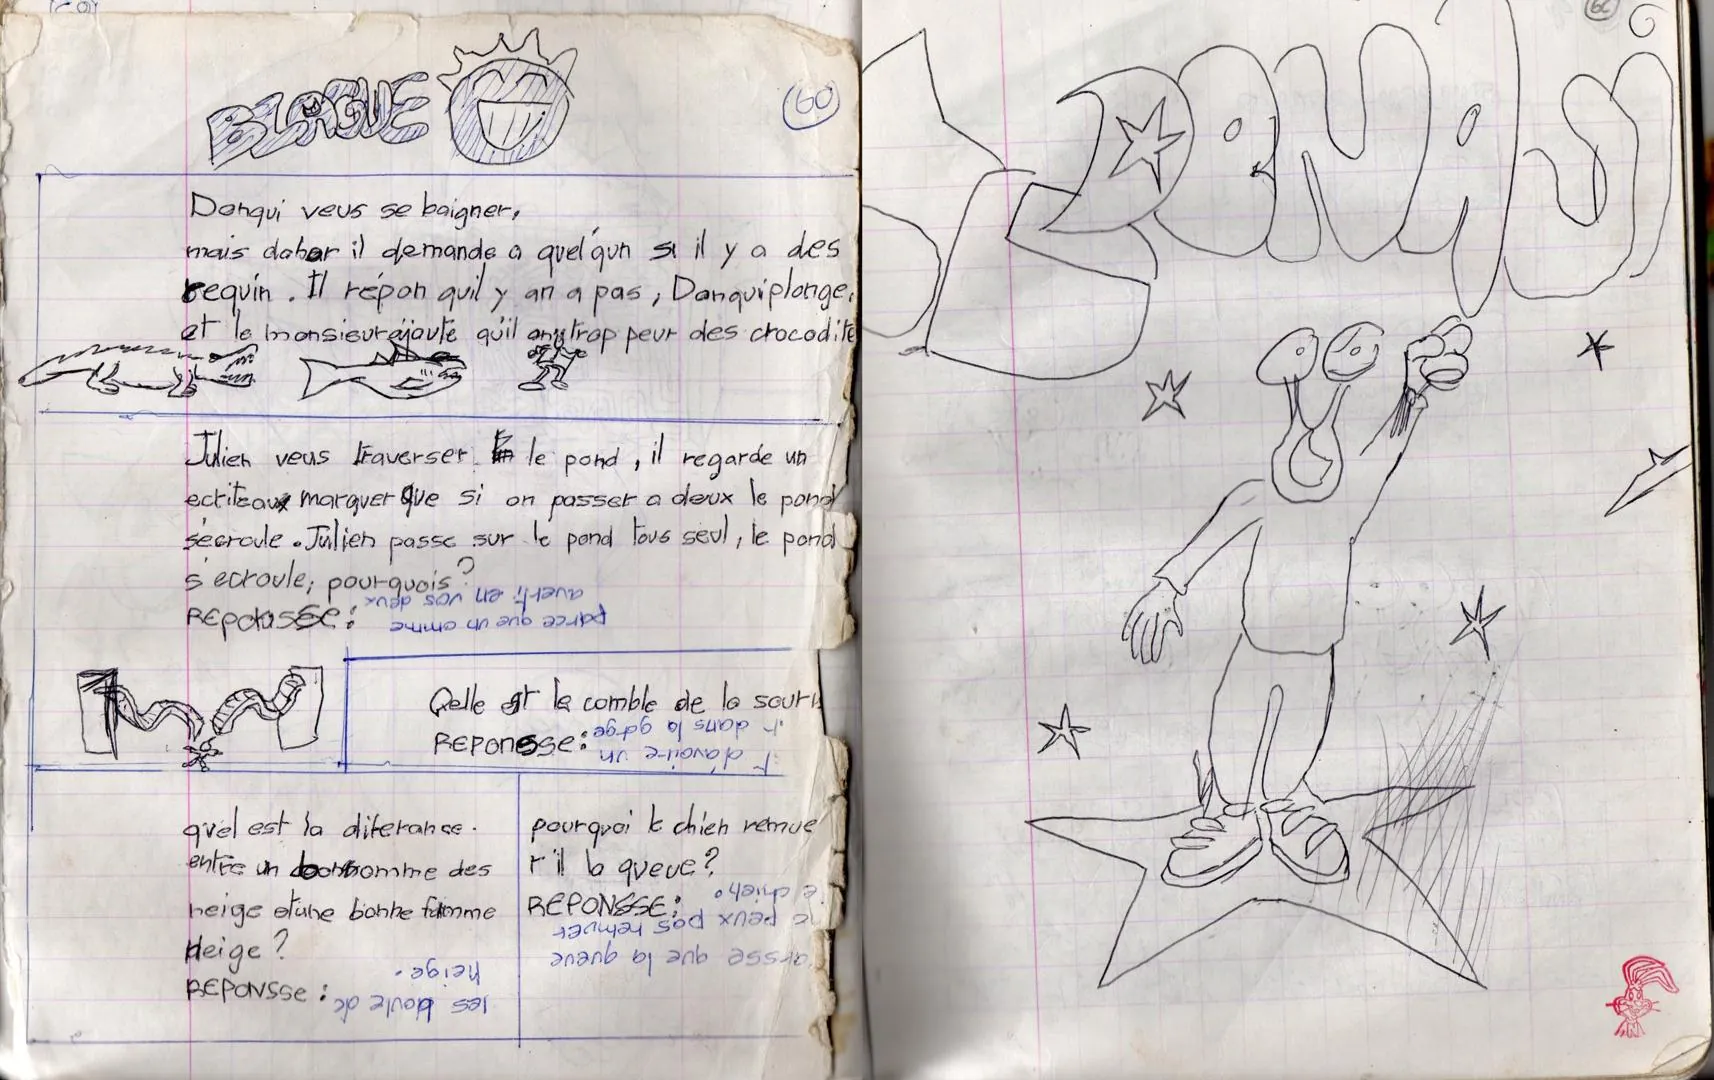 BLAGUE
60
Danqui veus se baigner,
mais dabor il demande a quelqun si il y a des
requin. Il répon quil y an a pas, Danqui plonge,
et le monsieur ajoute qu'il any trop peur des crocodile
Julien veus traverser le pond, il regarde un
ecriteaux marquer que si on passer a deux le pond
sécroule. Julien passe sur le pond tous seul, le pond
s'ecroule, pourquois?
REPONSSE:
parce que un omme
averti en vos deux
Qelle est le comble de la souris
REPONSSE:
d'avoire un
dans la gorge
quel est la diferance
entre un bonhomme des
neige et une bonne famme
deige?
REPONSSE:
les boule de
neige.
pourquoi le chien remue
t'il la queue?
REPONSSE:
que la queue
peux pas remuer
le chien.